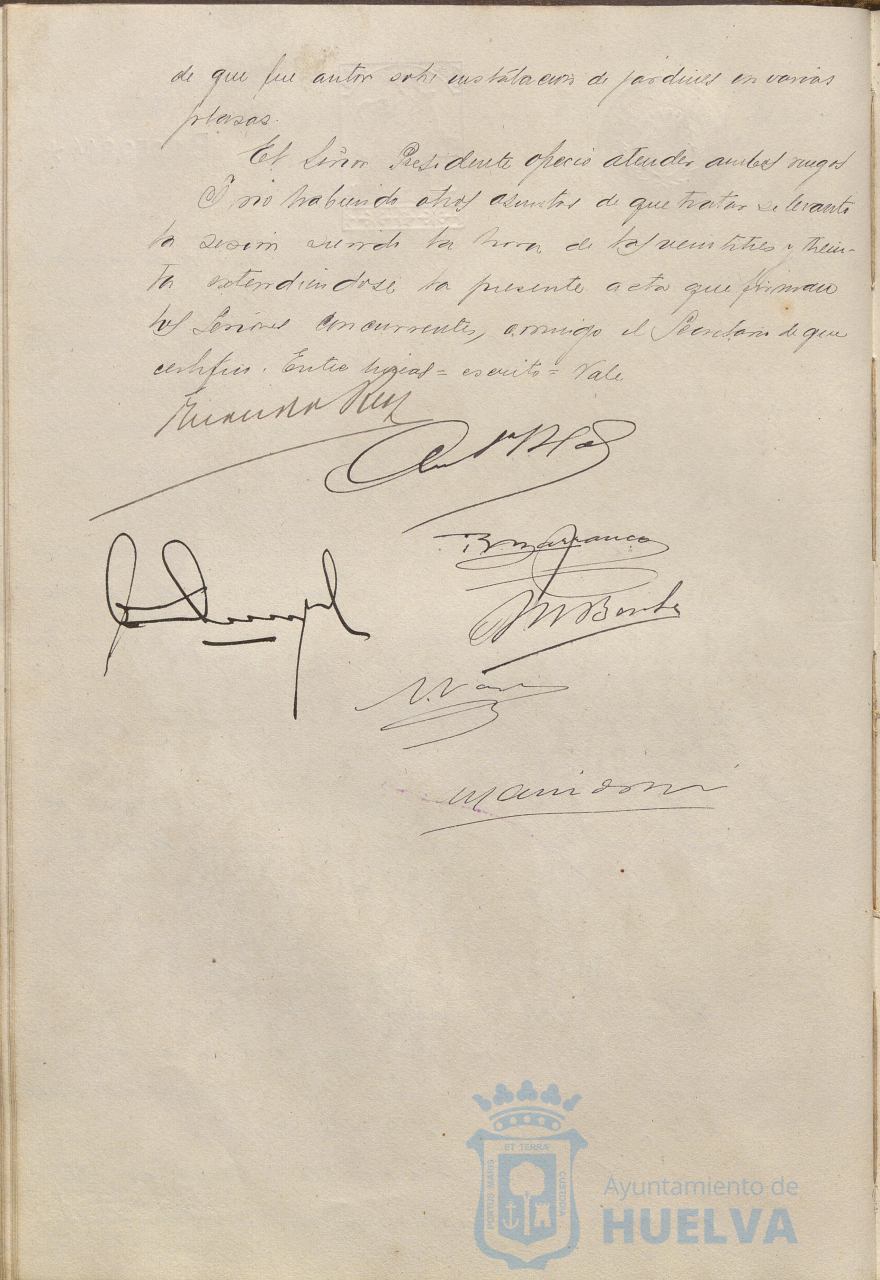 de que fue autor sobre instalacion de jardines en varias
plazas.
El Señor Presidente ofreció atender ambos ruegos
Y no habiendo otros asuntos de que tratar se levantó
la sesión siendo la hora de las veintitres y trein-
ta extendiendose la presente acta que firman
los Señores concurrentes, conmigo el Secretario de que
certifico. Entre lineas = escrito = Vale
Ruiz
B. Marranco
M Barba
ET TERRÆ
PORTUS MARIS
CUSTODIA
Ayuntamiento de
HUELVA